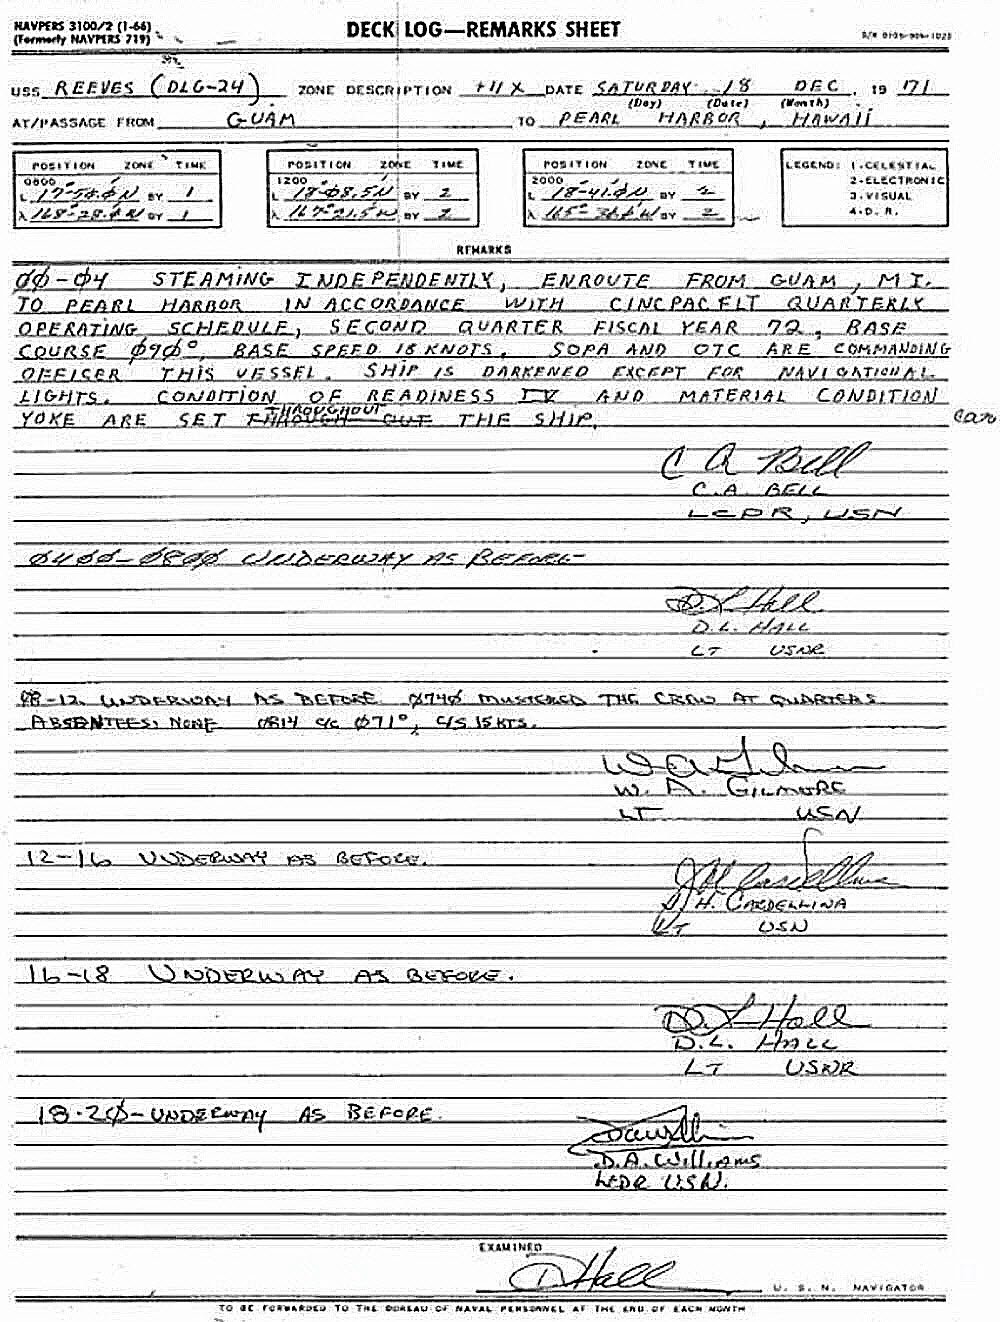 NAVPERS 3100/2 (1-66)
(Formerly NAVPERS 719)
DECK LOG—REMARKS SHEET
USS REEVES (DLG-24) ZONE DESCRIPTION +11 X DATE SATURDAY 18 DEC, 19 71
(Day) (Date) (Month)
AT/PASSAGE FROM GUAM TO PEARL HARBOR, HAWAII
POSITION ZONE TIME
0800
L BY 1
λ BY 1
POSITION ZONE TIME
1200
L 18-08.5N BY 2
λ 167-21.5W BY 2
POSITION ZONE TIME
2000
L 18-41.0N BY 2
λ BY 2
LEGEND: 1-CELESTIAL
2-ELECTRONIC
3-VISUAL
4-D. R.
REMARKS
00-04 STEAMING INDEPENDENTLY, ENROUTE FROM GUAM, M I.
TO PEARL HARBOR IN ACCORDANCE WITH CINCPACFLT QUARTERLY
OPERATING SCHEDULE, SECOND QUARTER FISCAL YEAR 72, BASE
COURSE 090°, BASE SPEED 15 KNOTS. SOPA AND OTC ARE COMMANDING
OFFICER THIS VESSEL. SHIP IS DARKENED EXCEPT FOR NAVIGATIONAL
LIGHTS. CONDITION OF READINESS IV AND MATERIAL CONDITION
YOKE ARE SET THROUGHOUT THROUGH OUT THE SHIP.
C A Bell
C. A. BELL
LCDR, USN
0400-0800 UNDERWAY AS BEFORE
D L Hall
D. L. HALL
LT USNR
08-12 UNDERWAY AS BEFORE 0740 MUSTERED THE CREW AT QUARTERS
ABSENTEES: NONE 0814 C/C 071°, C/S 15 KTS.
W A Gilmore
W. A. GILMORE
LT USN
12-16 UNDERWAY AS BEFORE.
J H Cardellina
J. H. CARDELLINA
LT USN
16-18 UNDERWAY AS BEFORE.
D. L Hall
D. L. HALL
LT USNR
18-20-UNDERWAY AS BEFORE.
D.A. WILLIAMS
LCDR USN.
EXAMINED
D Hall
U. S. N. NAVIGATOR
TO BE FORWARDED TO THE BUREAU OF NAVAL PERSONNEL AT THE END OF EACH MONTH